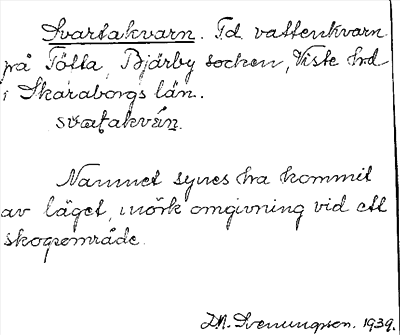 Svartakvarn. F.d. vattenkvarn
på Tötta, Bjärby socken, Viste hrd
i Skaraborgs län.
svạtakvạ̈ṇ.
Namnet synes ha kommit
av läget, mörk omgivning vid ett
skogsområde.
J.N. Svenungson. 1939.